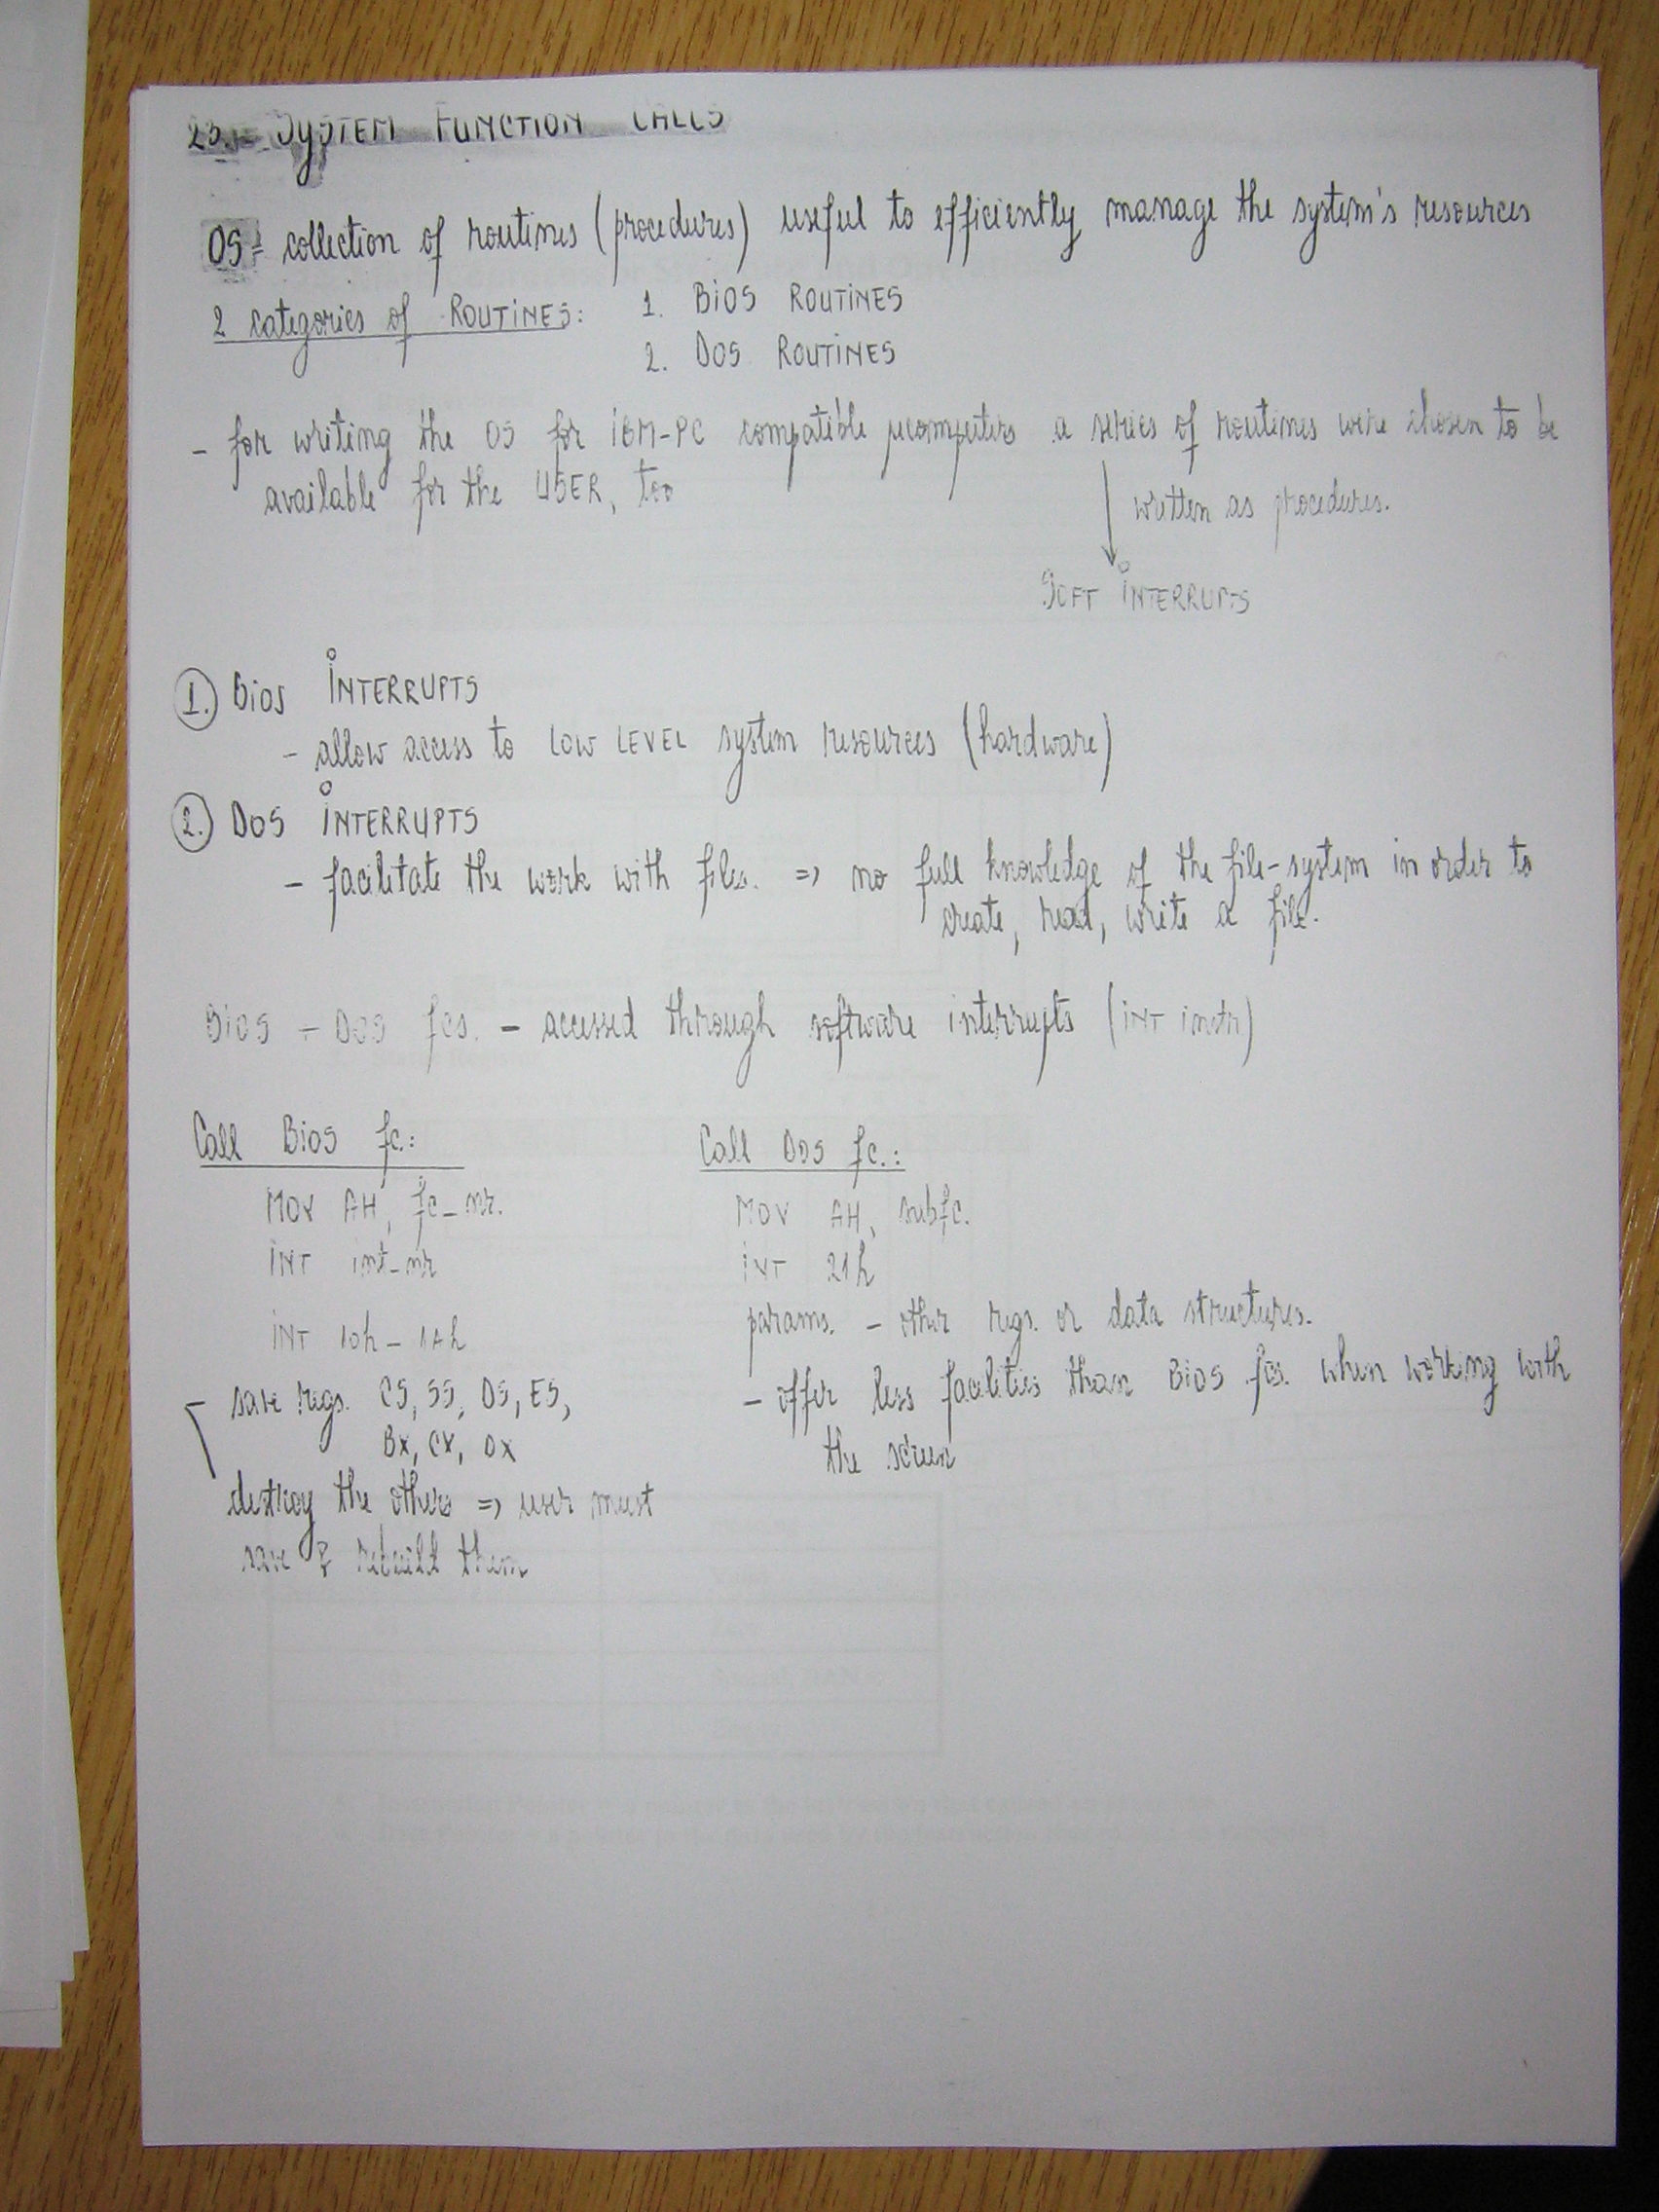 23. SYSTEM FUNCTION CALLS
OS = collection of routines (procedures) useful to efficiently manage the system's resources
2 categories of ROUTINES: 1. BIOS ROUTINES
2. DOS ROUTINES
- for writing the OS for IBM-PC compatible μcomputers a series of routines were chosen to be
available for the USER, too
written as procedures.
SOFT INTERRUPTS
1. BIOS INTERRUPTS
- allow access to LOW LEVEL system resources (hardware)
2. DOS INTERRUPTS
- facilitate the work with files. => no full knowledge of the file-system in order to
create, read, write a file.
BIOS + DOS fcs. - accessed through software interrupts (INT instr)
Call BIOS fc.:
MOV AH, fc_nr.
INT int_nr
INT 10h - 1Ah
- save regs. CS, SS, DS, ES,
BX, CX, DX
destroy the others => user must
save & rebuild them
Call DOS fc.:
MOV AH, subfc.
INT 21h
params. - other regs. or data structures.
- offer less facilities than BIOS fcs. when working with
the screen